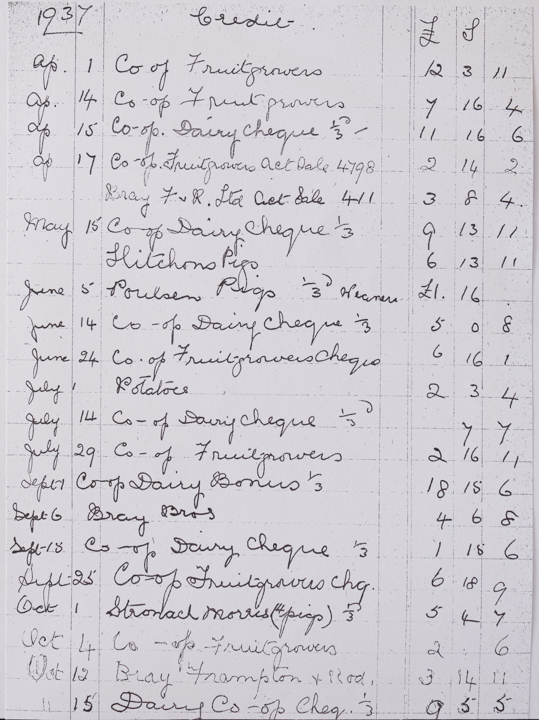 1937 Credit £ S
Ap. 1 Co op Fruitgrowers 12 3 11
Ap. 14 Co-op Fruit growers 7 16 4
Ap 15 Co-op. Dairy Cheque 1/3 - 11 16 6
Ap 17 Co-op. Fruitgrowers Act Sale 4798 2 14 2
Bray F & R. Ltd Act Sale 411 3 8 4.
May 15 Co-op Dairy Cheque 1/3 9 13 11
Hitchons Pigs 6 13 11
June 5 Poulsen Pigs 1/3 Weaners £1. 16
June 14 Co-op Dairy Cheque 1/3 5 0 8
June 24 Co.op Fruitgrowers Cheque 6 16 1
July 1 Potatoes 2 3 4
July 14 Co-op Dairy Cheque 1/3 7 7
July 29 Co-op Fruitgrowers 2 16 11
Sept-1 Co-op Dairy Bonus 1/3 18 15 6
Sept 6 Bray Bros 4 6 8
Sept-15 Co-op Dairy Cheque 1/3 1 15 6
Sept-25 Co-op Fruitgrowers Chq. 6 18 9
Oct 1 Stronach Morris (4 pigs) 1/3 5 4 7
Oct 4 Co-op Fruitgrowers 2 . 6
Oct 12 Bray Frampton & Rod. 3 14 11
" 15 Dairy Co-op Cheq. 1/3 9 5 5